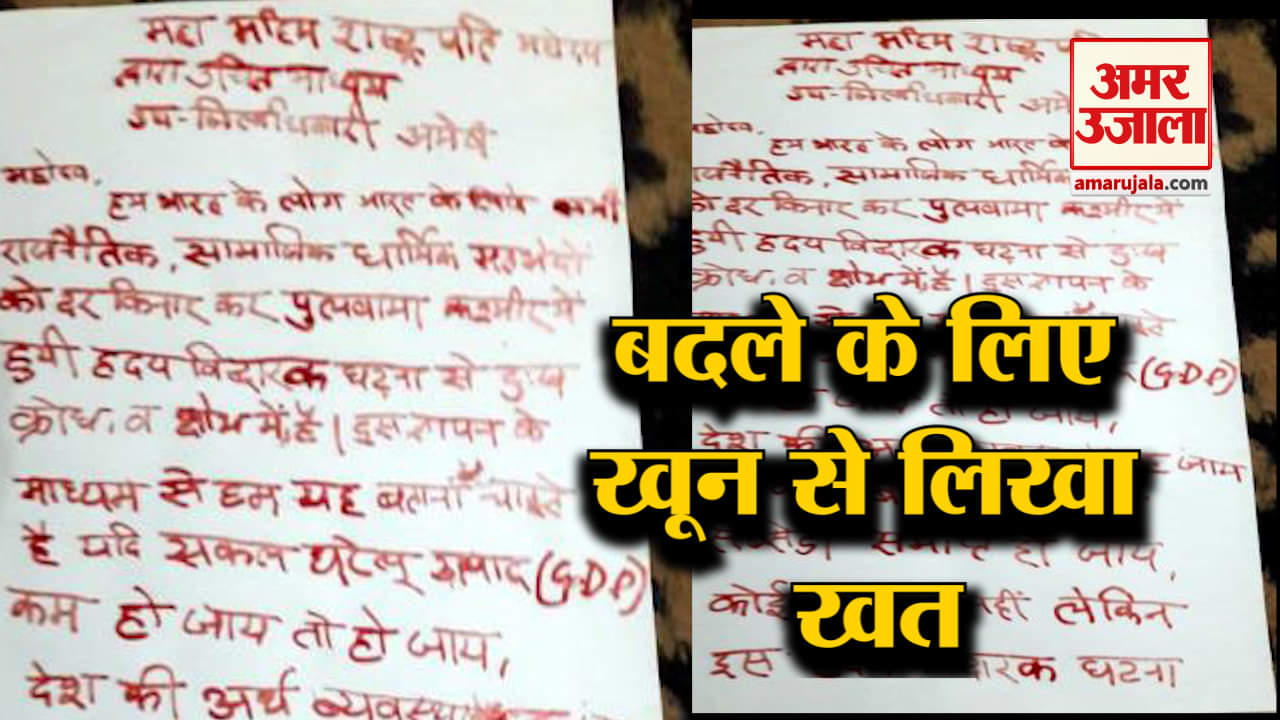 महा महिम राष्ट्र पति महोदय
द्वारा उचित माध्यम
उप-जिलाधिकारी अमेठी
महोदय,
हम भारत के लोग भारत के सभी
राजनैतिक, सामाजिक धार्मिक मतभेदों
को दर किनार कर पुलवामा कश्मीर में
हुयी हृदय विदारक घटना से दुःख
क्रोध, व क्षोभ में, है | इस ज्ञापन के
माध्यम से हम यह बताना चाहते
है यदि सकल घरेलू उत्पाद (G.D.P)
कम हो जाय तो हो जाय,
देश की अर्थ व्यवस्था
महा महिम राष्ट्र
द्वारा उचित माध्यम
उप-जिलाधिकारी अमे
महोदय,
हम भारत के लोग भारत के
राजनैतिक, सामाजिक धार्मिक
को दर किनार कर पुलवामा कश्मीर में
हुयी हृदय विदारक घटना से दुःख
क्रोध, व क्षोभ में, है | इस ज्ञापन के
(G.D.P)
तो हो जाय,
देश की जाय
समाप्त हो जाय,
कोई नहीं लेकिन
इस घटना
अमर
उजाला
amarujala.com
बदले के लिए
खून से लिखा
खत